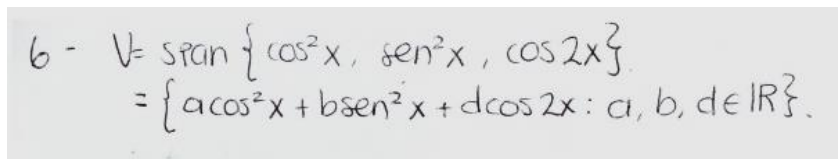 6 - V= span {cos²x, sen²x, cos2x}
= {acos²x + bsen²x + dcos2x : a, b, d ∈ IR}.